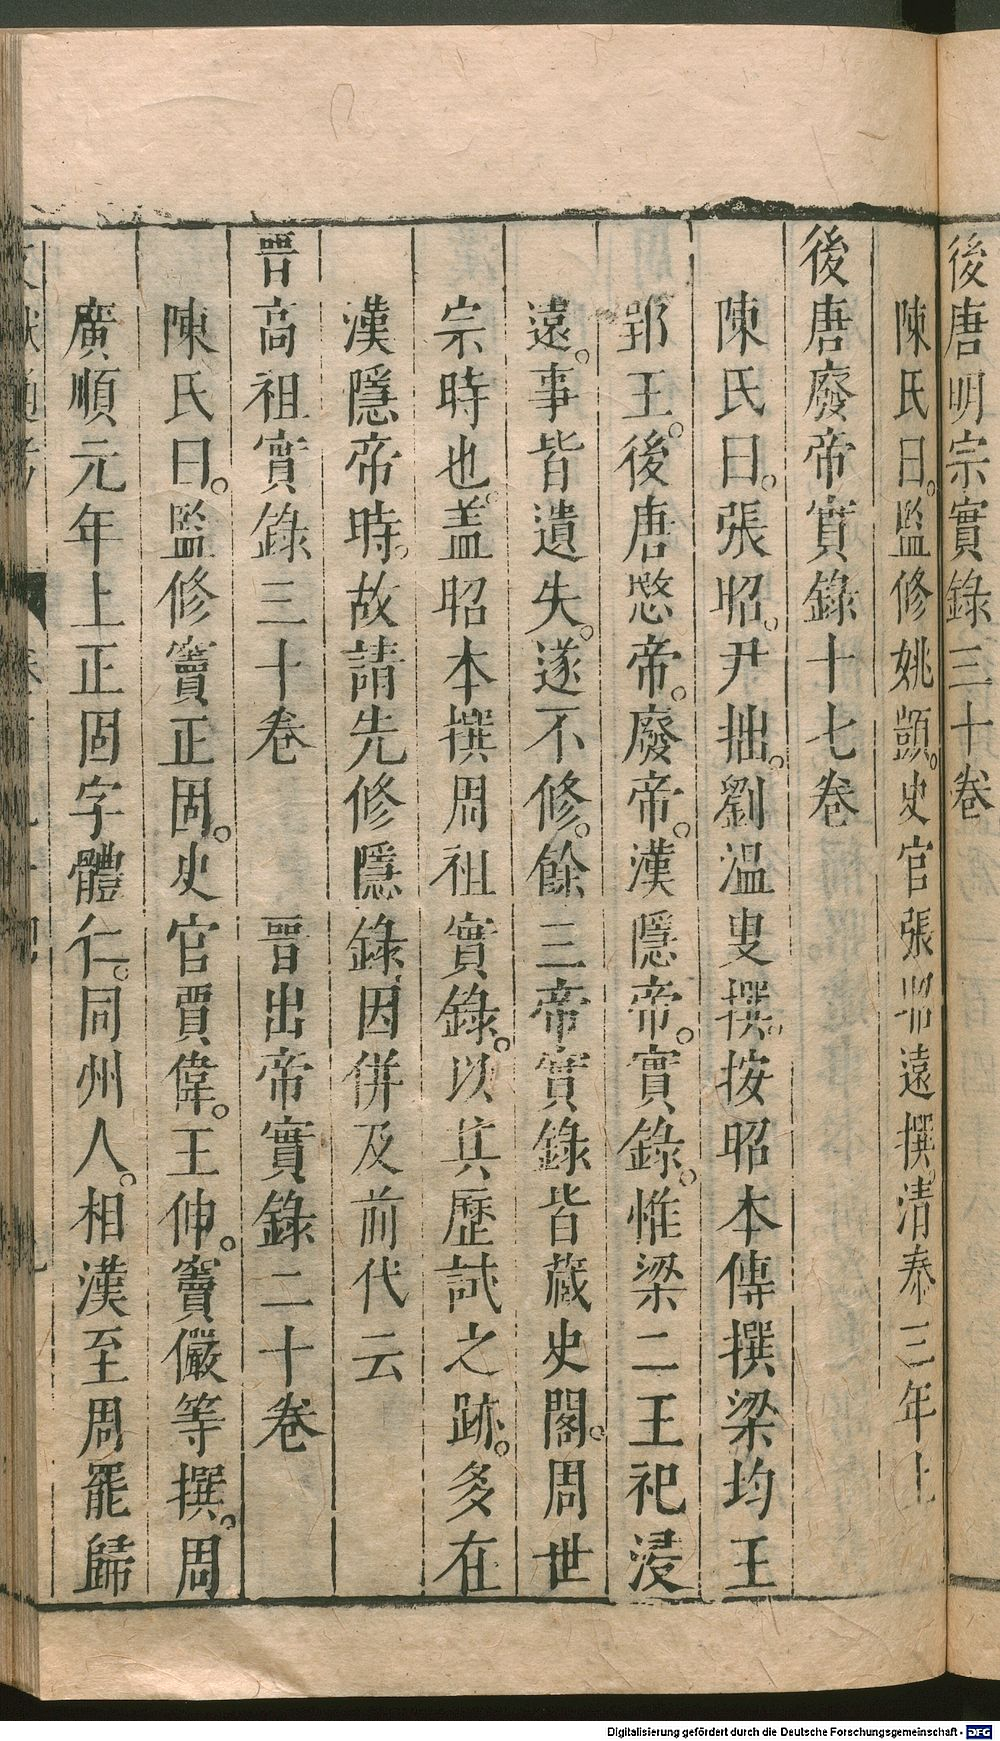 後唐明宗實錄三十卷
陳氏曰。監修姚顗。史官張昭遠撰。清泰三年上
後唐廢帝實錄十七卷
陳氏曰。張昭。尹拙。劉溫叟撰。按昭本傳撰梁均王
郢王。後唐愍帝。廢帝。漢隱帝。實錄。惟梁二王祀浸
遠。事皆遺失。遂不修。餘三帝實錄皆藏史閣。周世
宗時也。盖昭本撰周祖實錄。以其歷試之跡。多在
漢隱帝時。故請先修隱錄。因併及前代云
晉高祖實錄三十卷　晉出帝實錄二十卷
陳氏曰。監修竇正固。史官賈偉。王伸。竇儼等撰。周
廣順元年上正固字體仁。同州人。相漢至周罷歸
Digitalisierung gefördert durch die Deutsche Forschungsgemeinschaft - DFG